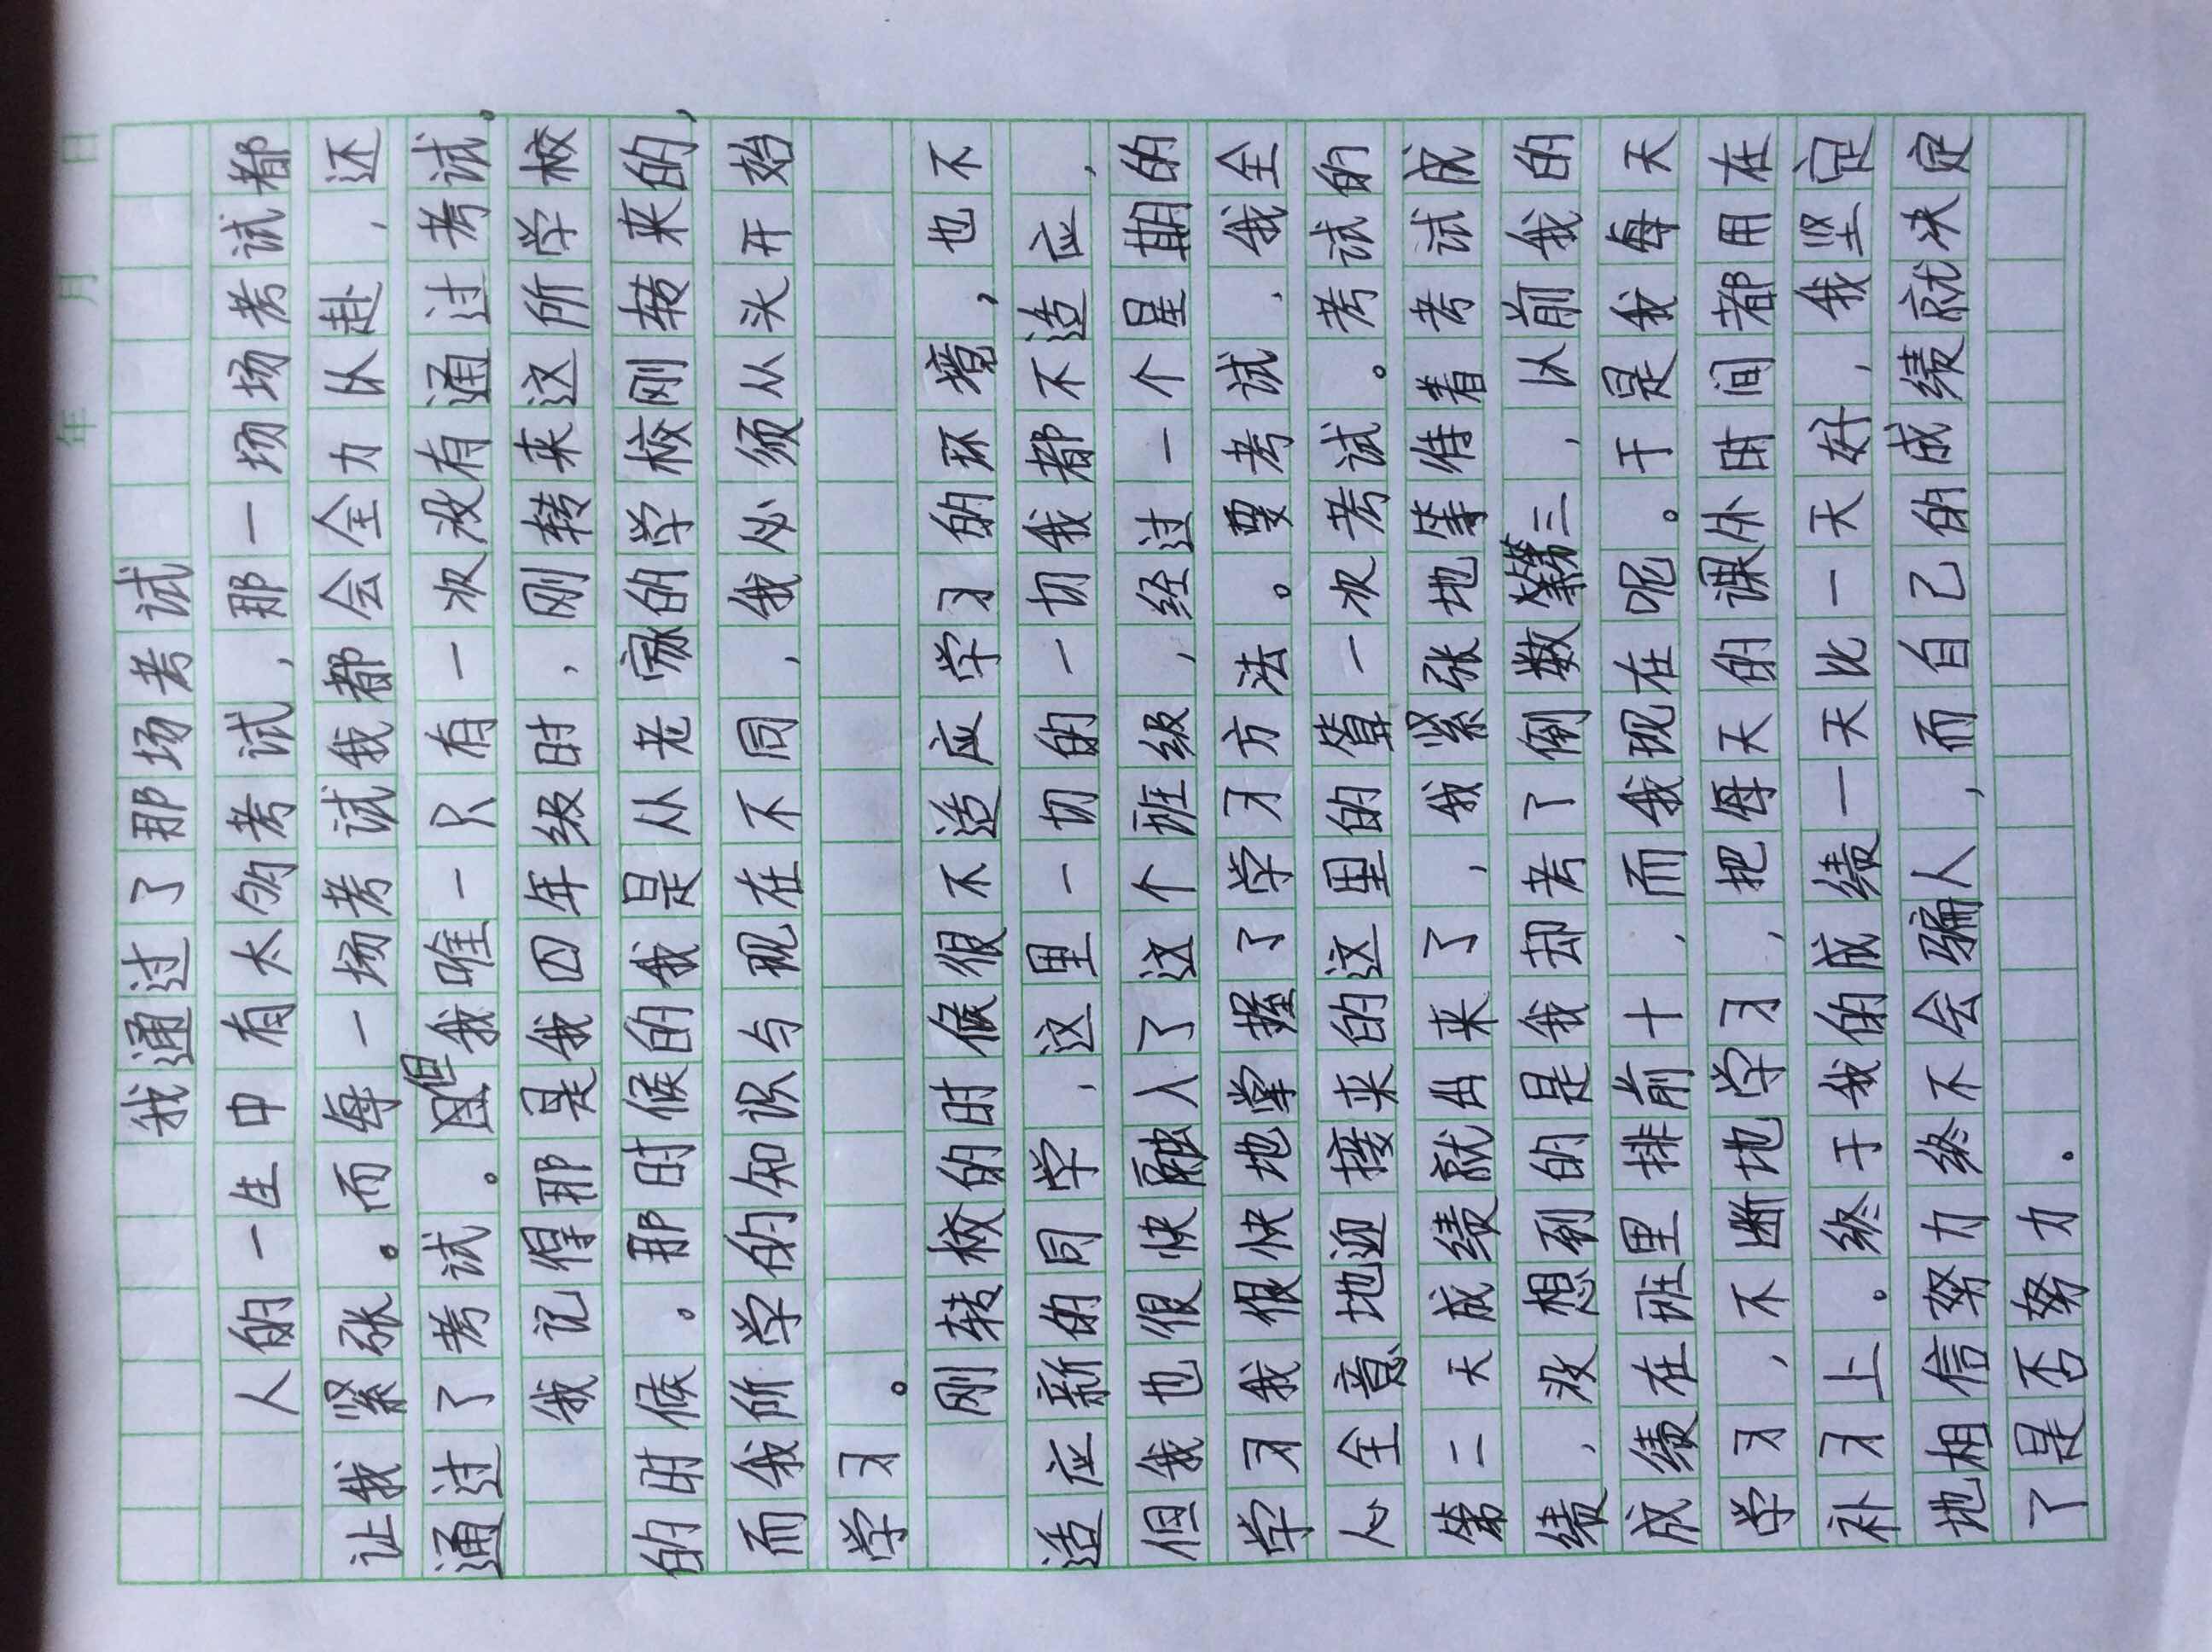 年 月 日
我通过了那场考试
人的一生中有太多的考试，那一场场考试都
让我紧张。而每一场考试我都会全力以赴，还
通过了考试。但我唯一只有一次没有通过考试。
我记得那是我四年级时，刚转来这所学校
的时候。那时候的我是从老家的学校刚转来的，
而我所学的知识与现在不同，我必须从头开始
学习。
刚转校的时候很不适应学习的环境，也不
适应新的同学，这里一切的一切我都不适应，
但我也很快融入了这个班级，经过一个星期的
学习我很快地掌握了学习方法。要考试，我全
心全意地迎接来的这里的算一次考试。考试的
第二天成绩就出来了，我紧张地等待着考试成
绩，没想到的是我却考了倒数第三，以前我的
成绩在班里排前十，而我现在呢。于是我每天
学习，不断地学习，把每天的课外时间都用在
补习上。终于我的成绩一天比一天好，我坚定
地相信努力终不会骗人，而自己的成绩就决定
了是否努力。